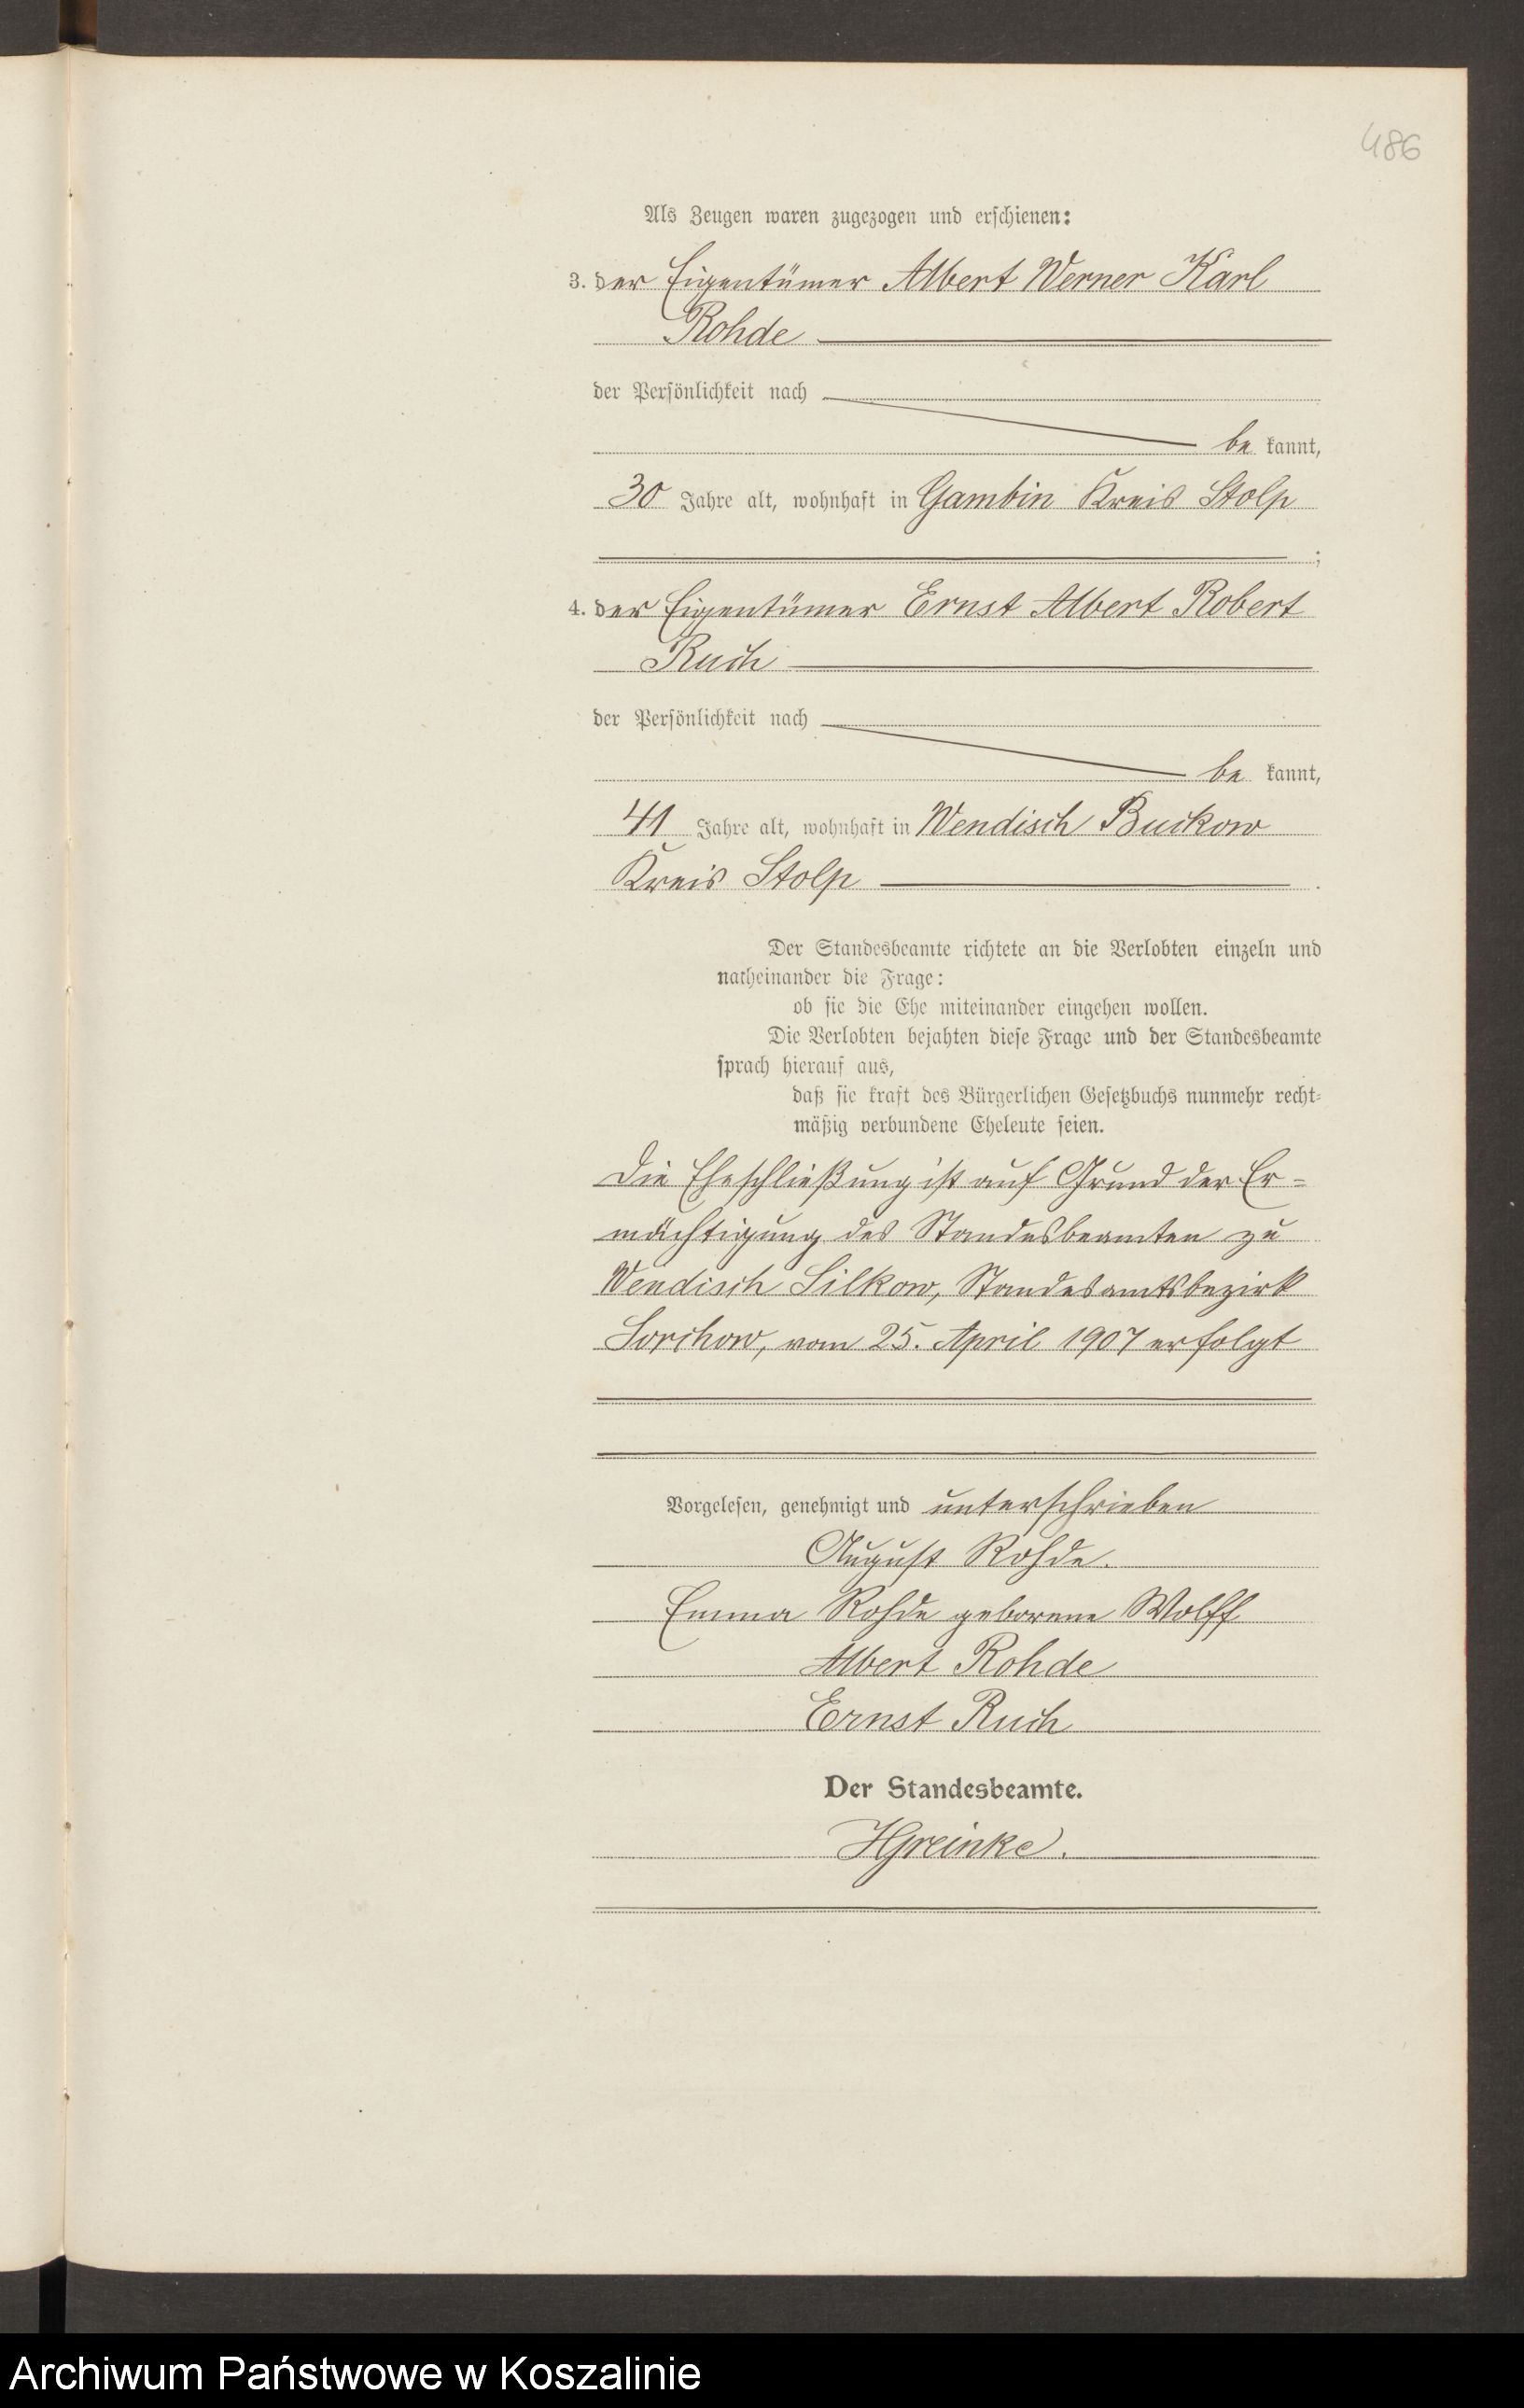 486
Als Zeugen waren zugezogen und erschienen:
3. der Eigentümer Albert Werner Karl
Rohde
der Persönlichkeit nach
be kannt,
30 Jahre alt, wohnhaft in Gambin Kreis Stolp
;
4. der Eigentümer Ernst Albert Robert
Ruch
der Persönlichkeit nach
be kannt,
41 Jahre alt, wohnhaft in Wendisch Buckow
Kreis Stolp .
Der Standesbeamte richtete an die Verlobten einzeln und
nacheinander die Frage:
ob sie die Ehe miteinander eingehen wollen.
Die Verlobten bejahten diese Frage und der Standesbeamte
sprach hierauf aus,
daß sie kraft des Bürgerlichen Gesetzbuchs nunmehr recht-
mäßig verbundene Eheleute seien.
Die Eheschließung ist auf Grund der Er-
mächtigung des Standesbeamten zu
Wendisch Silkow, Standesamtsbezirk
Sorchow, vom 25. April 1907 erfolgt
Vorgelesen, genehmigt und unterschrieben
August Rohde.
Emma Rohde geborene Wolff
Albert Rohde
Ernst Ruch
Der Standesbeamte.
HGreinke.
Archiwum Państwowe w Koszalinie